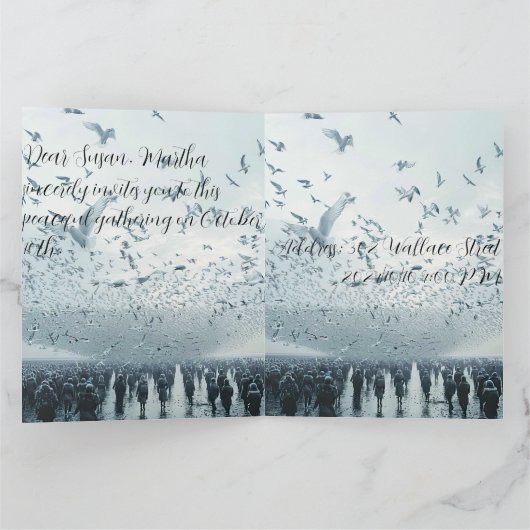 Dear Susan, Martha
sincerely invites you to this
peaceful gathering on October
10th.
Address: 302 Wallace Strat
2024/10/10 4:00 PM